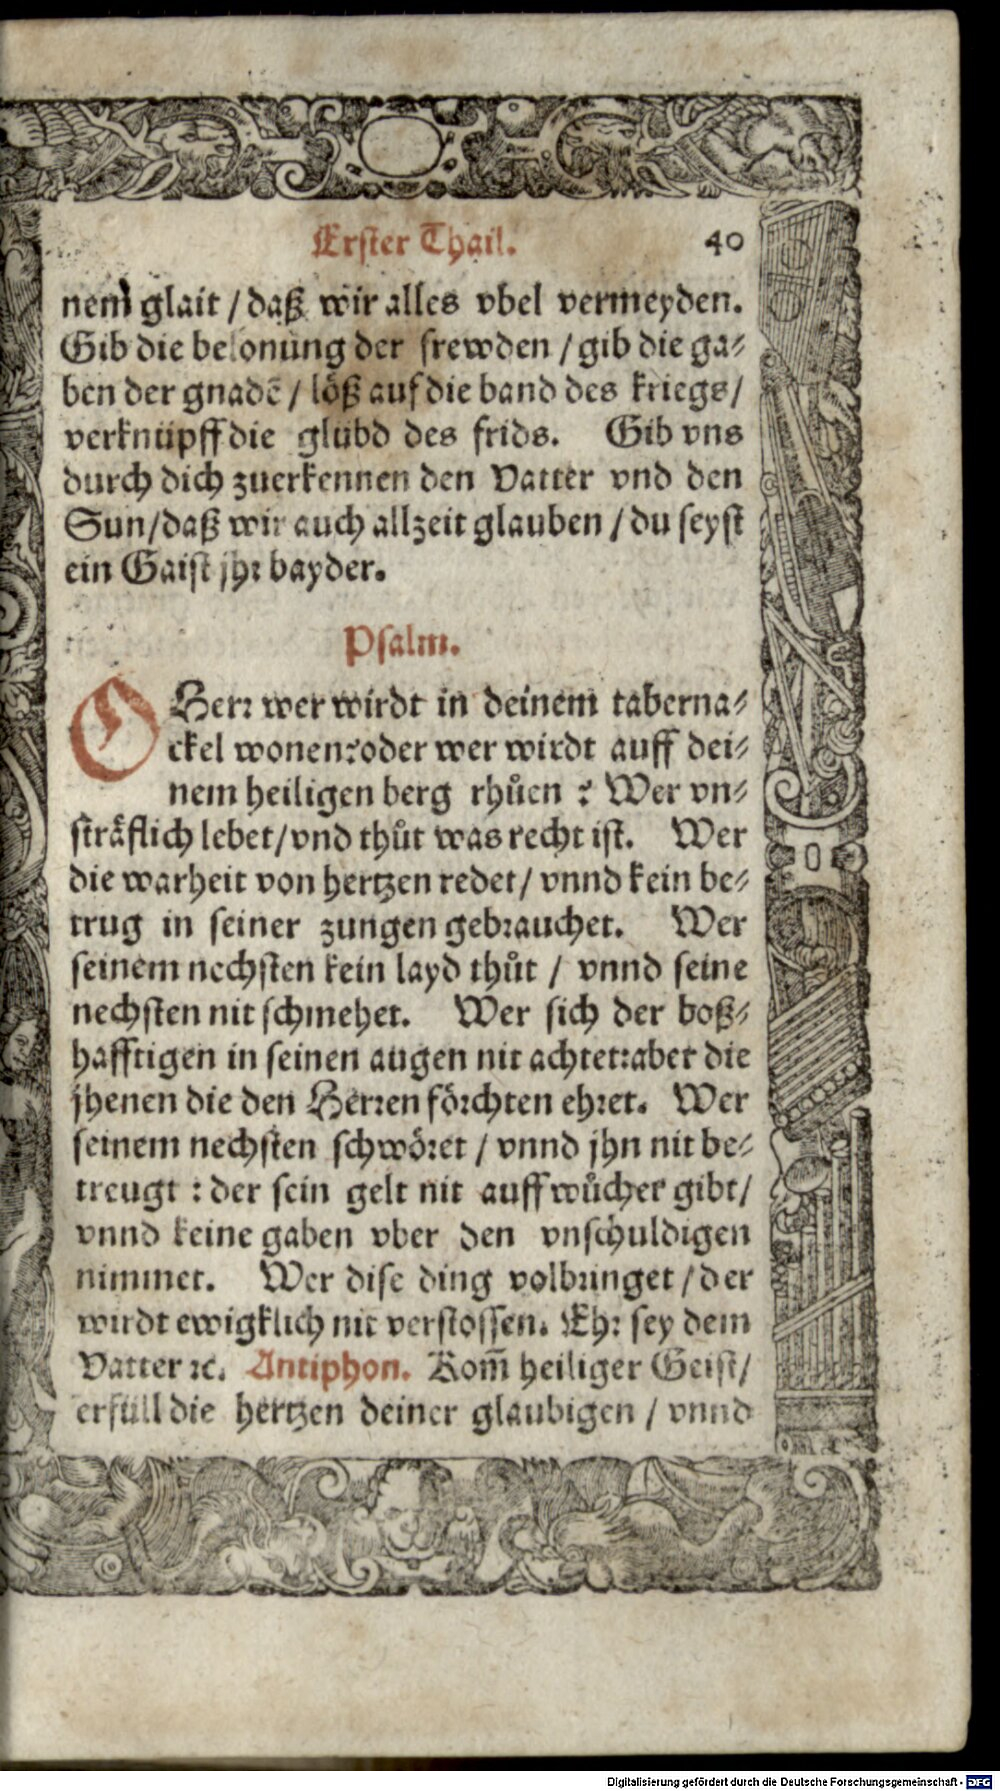 Erster Thail. 40
nem glait / daß wir alles vbel vermeyden.
Gib die belonung der frewden / gib die ga⸗
ben der gnadē / löß auf die band des kriegs /
verknüpff die glübd des frids. Gib vns
durch dich zuerkennen den Vatter vnd den
Sun / daß wir auch allzeit glauben / du seyst
ein Gaist jhr bayder.
Psalm.
O Herr wer wirdt in deinem taberna⸗
ckel wonen? oder wer wirdt auff dei⸗
nem heiligen berg rhůen ? Wer vn⸗
sträflich lebet / vnd thůt was recht ist. Wer
die warheit von hertzen redet / vnnd kein be⸗
trug in seiner zungen gebrauchet. Wer
seinem nechsten kein layd thůt / vnnd seine
nechsten nit schmehet. Wer sich der boß⸗
hafftigen in seinen augen nit achtet: aber die
jhenen die den Herren förchten ehret. Wer
seinem nechsten schwöret / vnnd jhn nit be⸗
treugt : der sein gelt nit auff wůcher gibt /
vnnd keine gaben vber den vnschuldigen
nimmet. Wer dise ding volbringet / der
wirdt ewigklich nit verstossen. Ehr sey dem
Vatter ꝛc. Antiphon. Kom̃ heiliger Geist /
erfüll die hertzen deiner glaubigen / vnnd
Digitalisierung gefördert durch die Deutsche Forschungsgemeinschaft - DFG